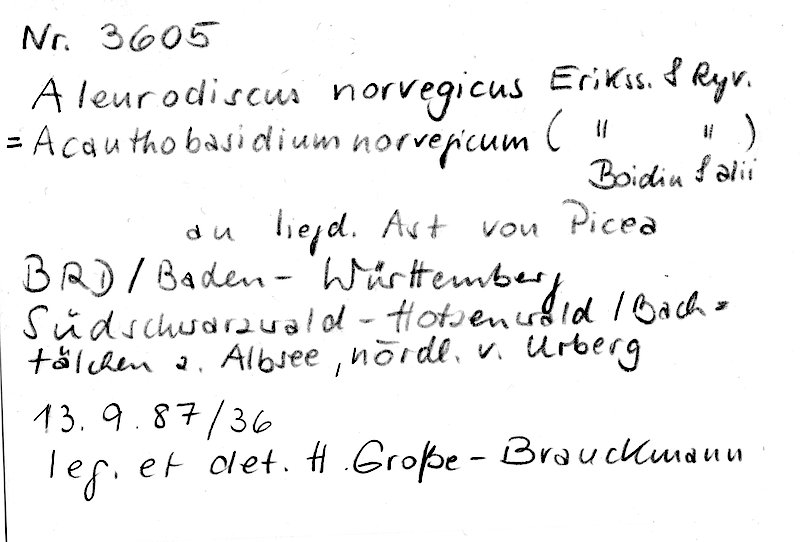 Nr. 3605
Aleurodiscus norvegicus Erikss. & Ryv.
= Acanthobasidium norvegicum ( " " )
Boidin & alii
an liegd. Ast von Picea
BRD / Baden - Württemberg
Südschwarzwald - Hotzenwald / Bach =
tälchen z. Albsee, nördl. v. Urberg
13. 9. 87/36
leg. et det. H. Große - Brauckmann